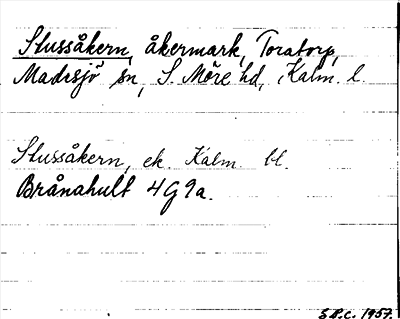 Slussåkern, åkermark, Toratorp,
Madesjö sn, S. Möre hd, Kalm. l.
Slussåkern, ek. Kalm. bl.
Brånahult 4G9a.
1957.